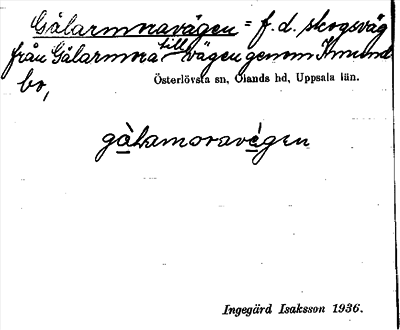 Gälarmoravägen = f.d. skogsväg
från Gälarmora till vägen genom Ämund
bo,
Österlövsta sn, Olands hd, Uppsala län.
gàLamoravégen
Ingegärd Isaksson 1936.